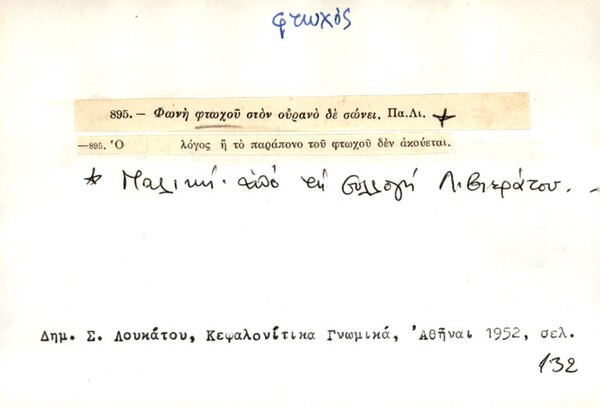 φτωχὸς
895.— Φωνὴ φτωχοῦ στὸν οὐρανὸ δὲ σώνει. Πα.Λι. *
—895. Ὁ λόγος ἢ τὸ παράπονο τοῦ φτωχοῦ δὲν ἀκούεται.
* Παλική· ἀπό τή συλλογή Λιβιεράτου. -
Δημ. Σ. Λουκάτου, Κεφαλονίτικα Γνωμικά, Ἀθῆναι 1952, σελ.
132